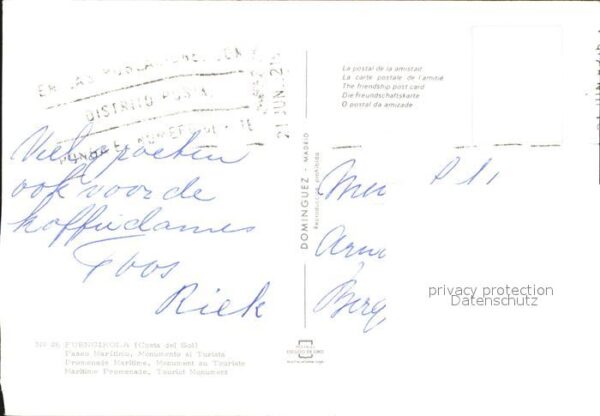 EN LAS POBLACIONES CON
DISTRITO POSTAL
PONGA EL NUMERO
21 JUN. 2
Veele groeten
ook voor de
koffiedames
Toos
Riek
La postal de la amistad
La carte postale de l'amitié
The friendship post card
Die Freundschaftskarte
O postal da amizade
DOMINGUEZ - MADRID
Reproducción prohibida
privacy protection
Datenschutz
Nº 26 FUENGIROLA (Costa del Sol)
Paseo Marítimo, Monumento al Turista
Promenade Maritime, Monument au Touriste
Maritime Promenade, Tourist Monument
ESCUDO DE ORO